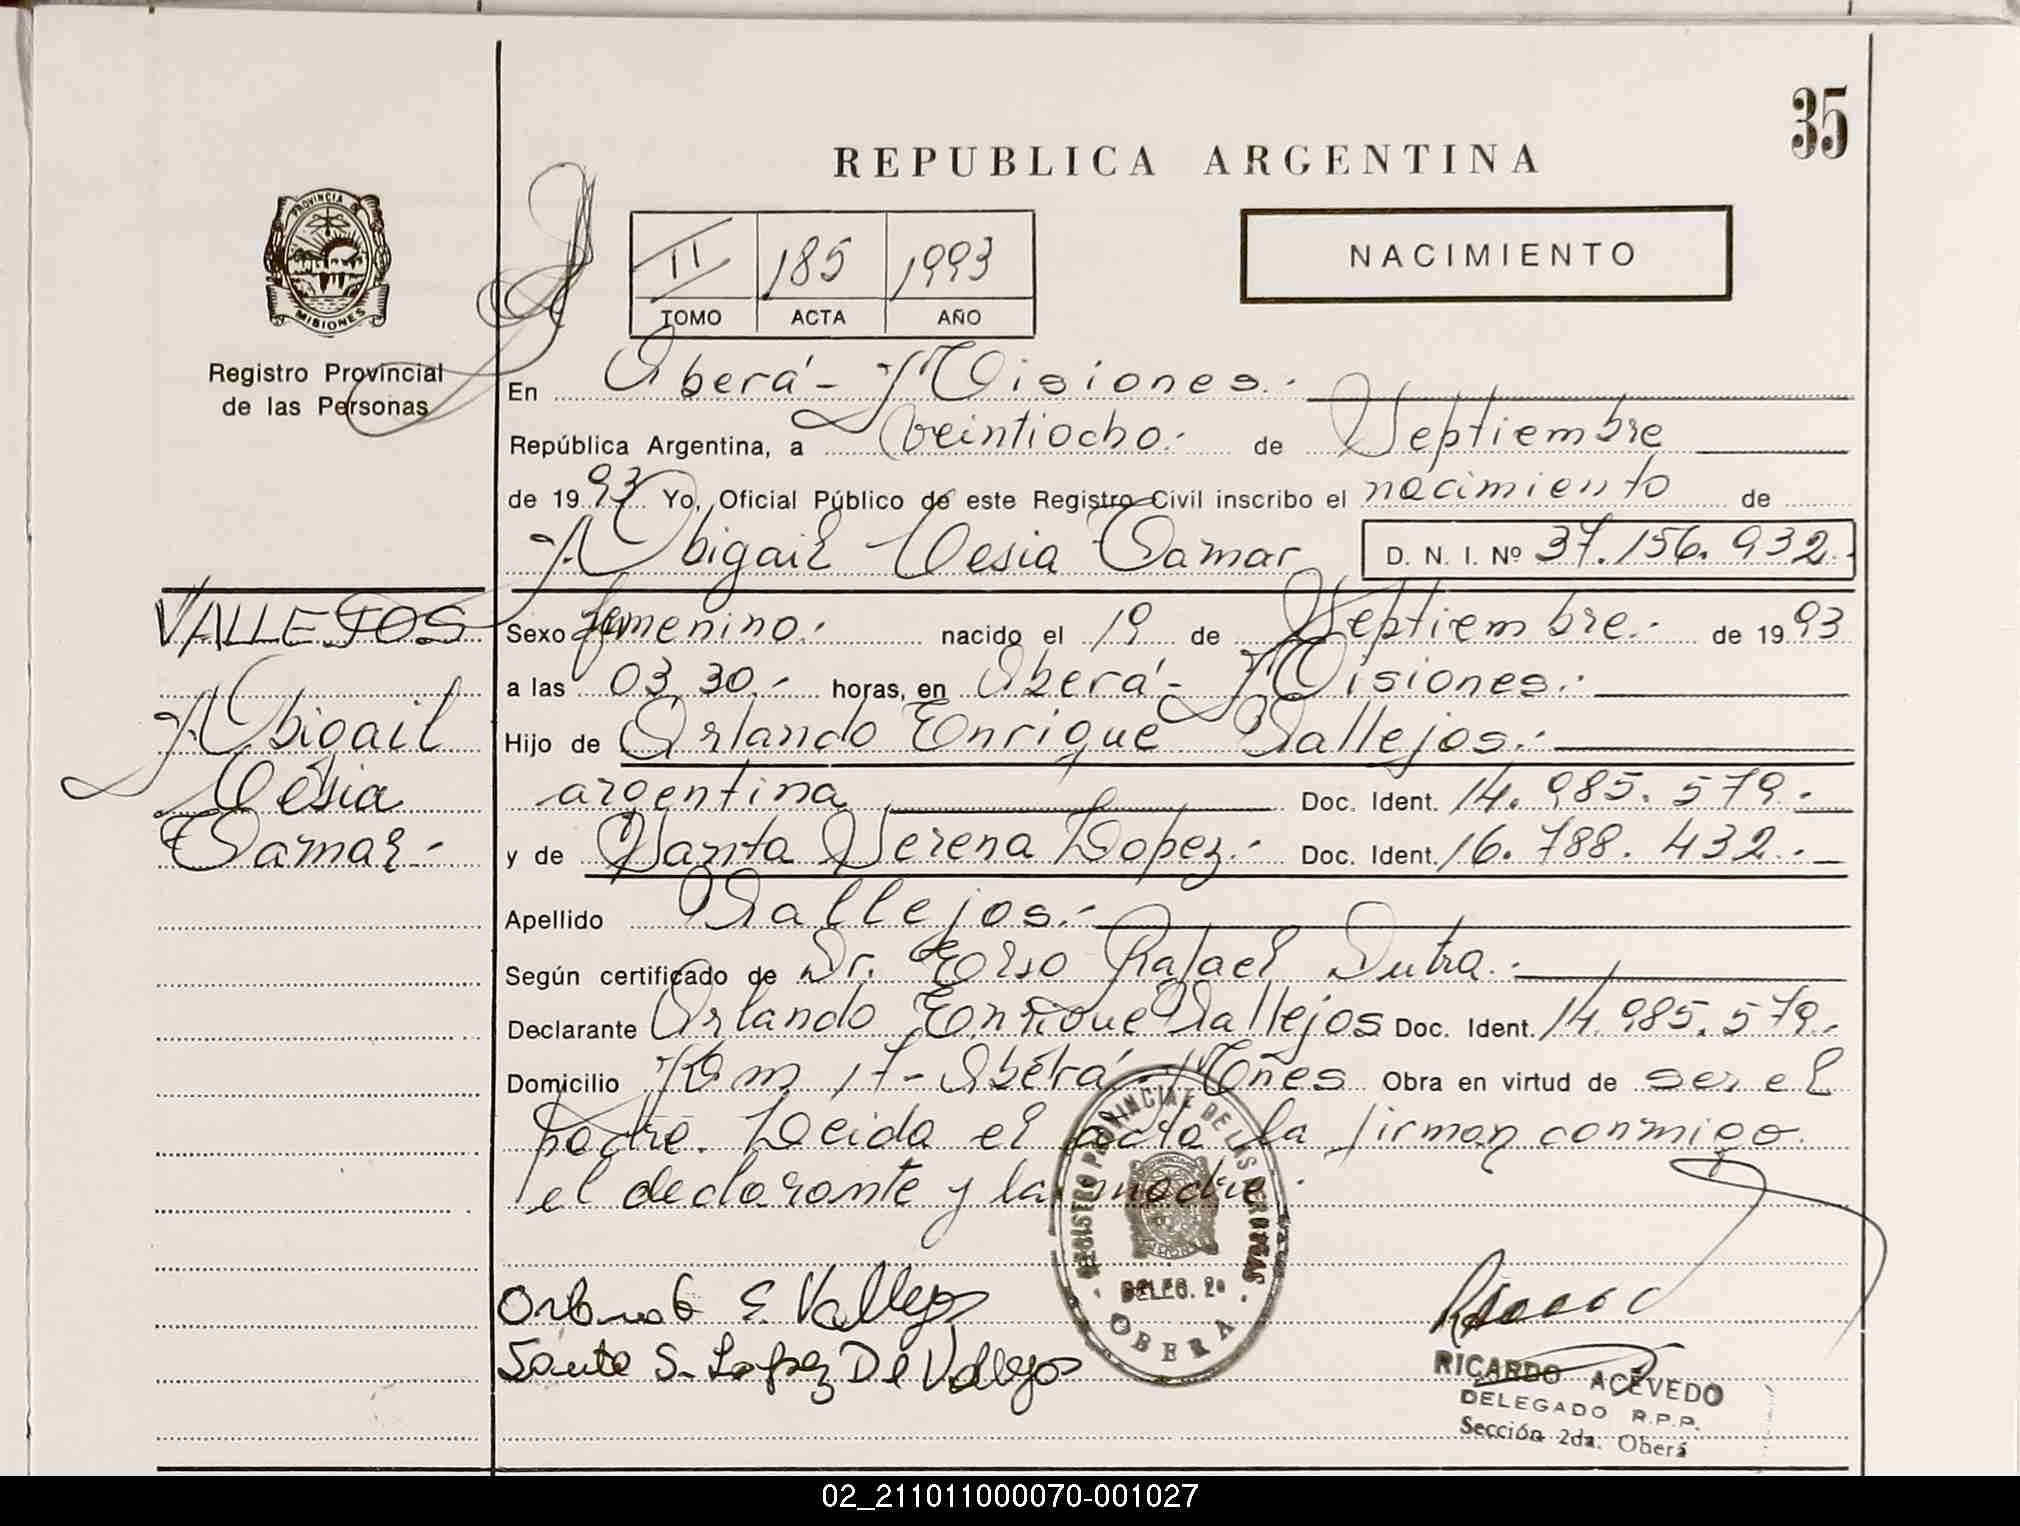 35
REPUBLICA ARGENTINA
PROVINCIA DE
MISIONES
Registro Provincial
de las Personas
II 185 1993
TOMO ACTA AÑO
NACIMIENTO
En Oberá - Misiones.-
República Argentina, a veintiocho.- de Septiembre
de 1993 Yo, Oficial Público de este Registro Civil inscribo el nacimiento de
Abigail Cesia Tamar D. N. I. Nº 37.156.932.-
VALLEJOS
Abigail
Cesia
Tamar.-
Sexo femenino.- nacido el 19 de Septiembre.- de 1993
a las 03,30.- horas, en Oberá - Misiones.-
Hijo de Orlando Enrique Vallejos.-
argentina Doc. Ident. 14.985.579.-
y de Santa Serena Lopez.- Doc. Ident. 16.788.432.-
Apellido Vallejos.-
Según certificado de Dr. Rafael Dutra.-
Declarante Orlando Enrique Vallejos Doc. Ident. 14.985.579.-
Domicilio Km 17 - Oberá - Mñes Obra en virtud de ser el
padre. Leida el acta la firman conmigo
el declarante y la madre.
REGISTRO PROVINCIAL DE LAS PERSONAS
DELEG. 2a
OBERA
Orlando E. Vallejos
Santa S. Lopez De Vallejos
RICARDO ACEVEDO
DELEGADO R.P.P.
Sección 2da. Oberá
02_211011000070-001027